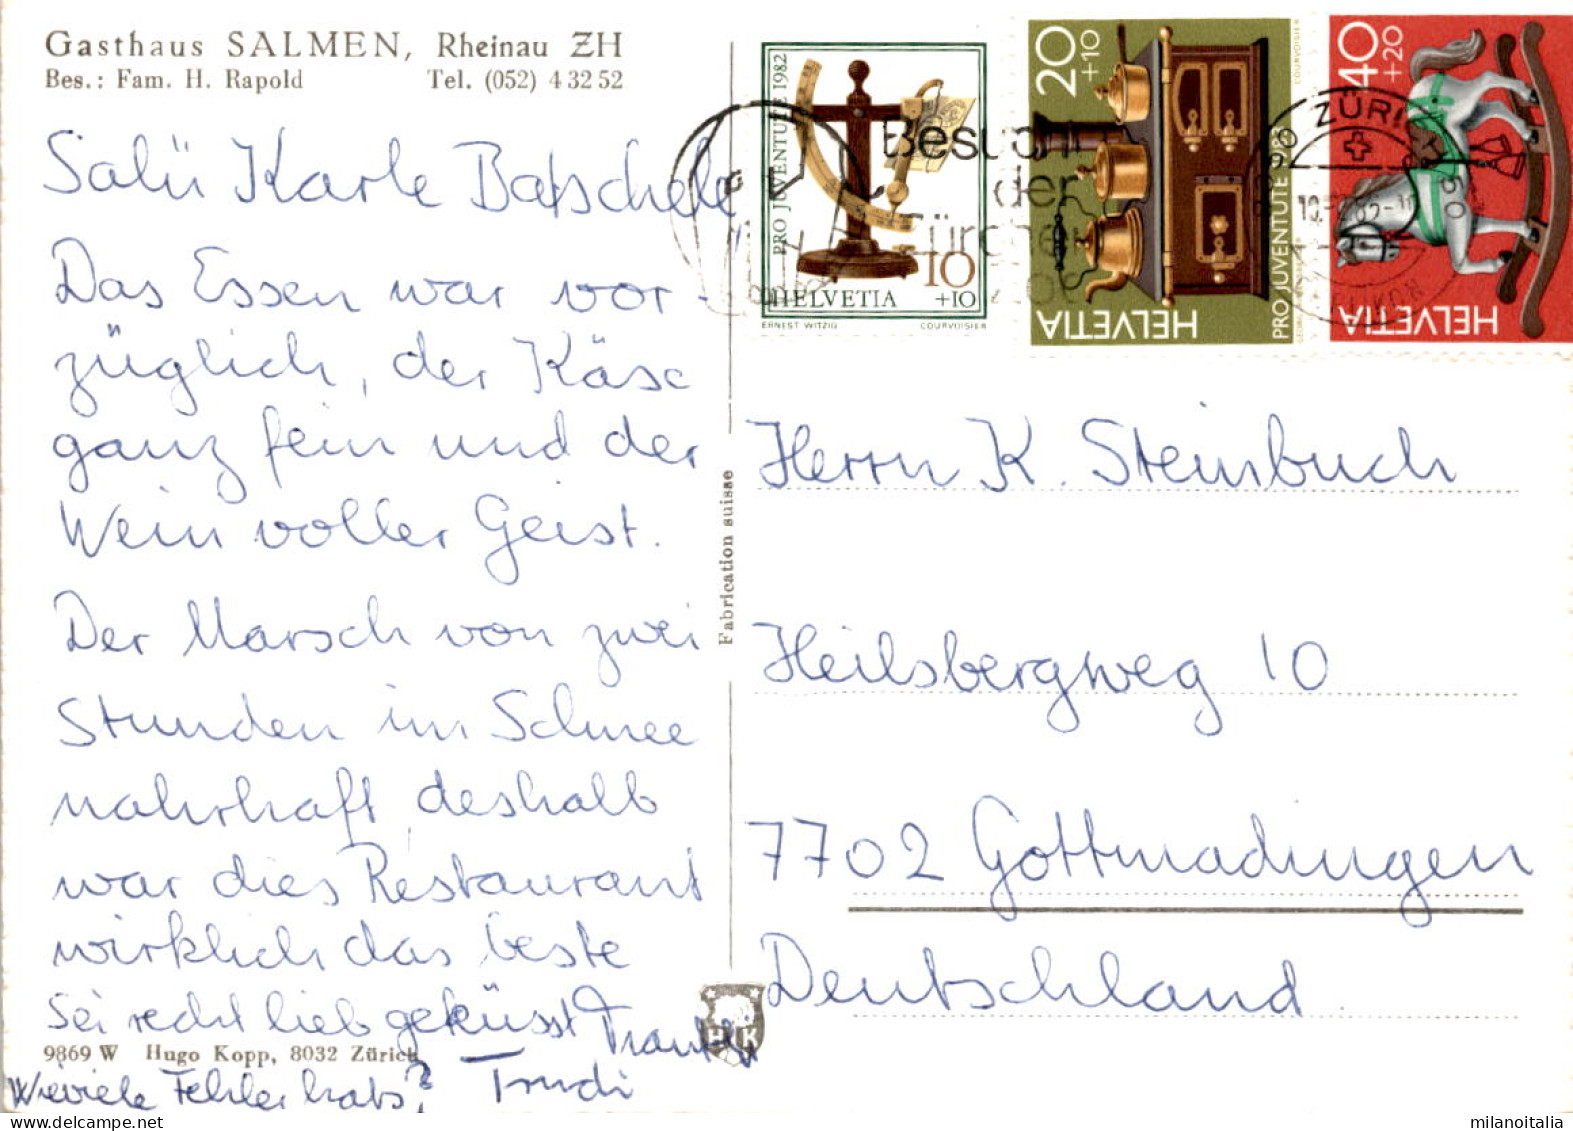 Gasthaus SALMEN, Rheinau ZH
Bes.: Fam. H. Rapold Tel. (052) 4 32 52
Salü Karle Batschele
Das Essen war vor-
züglich, der Käse
ganz fein und der
Wein voller Geist.
Der Marsch von zwei
Stunden im Schnee
nahrhaft, deshalb
war dies Restaurant
wirklich das beste
Sei recht lieb geküsst
Trudi
9869 W Hugo Kopp, 8032 Zürich
Wieviele Fehler hats?
Fabrication suisse
HK
PRO JUVENTUTE 1982
10
+10
HELVETIA
ERNEST WITZIG COURVOISIER
20
+10
HELVETIA
PRO JUVENTUTE 1983
COURVOISIER
40
+20
HELVETIA
Besucht
der
Zürcher
ZÜRI
Herrn K. Steinbuch
Heilsbergweg 10
7702 Gottmadingen
Deutschland
milanoitalia